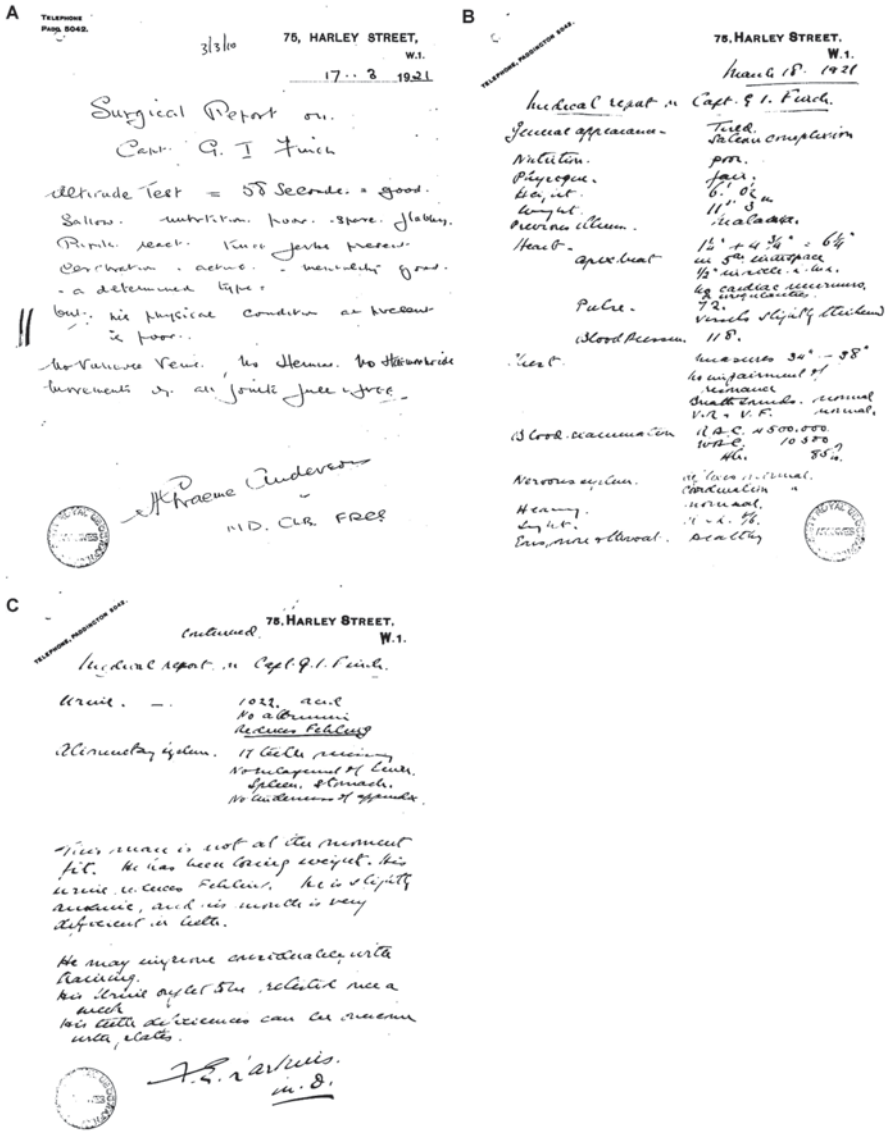 A
TELEPHONE
PADD. 5042.
3/3/10
75, HARLEY STREET,
W.1.
17 . . 3 1921
Surgical Report on
Capt. G. I Finch
Altitude Test = 58 Seconds. = good.
Sallow. nutrition poor. spare. flabby.
Pupils react. Knee jerks present
Cerebration . active . mentality good.
- a determined type.
but: his physical condition at present
is poor.
No Varicose Veins. No Hernia. No Haemorrhoids
Movements of all joints full & free.
H Graeme Anderson
MD. Ch.B. FRCS
B
TELEPHONE, PADDINGTON 5042.
75, HARLEY STREET.
W.1.
March 18. 1921
Medical report on Capt. G I. Finch.
General appearance - Tired.
Sallow complexion
Nutrition. poor.
Physique. fair.
Height.
Weight.
Previous illness. Malaria.
Heart -
apex beat in 5th interspace
No cardiac murmurs,
or irregularities.
Pulse. 72.
Vessels slightly thickened
Blood Pressure 118.
Chest. Measures 34" - 38"
No impairment of
resonance
Breath sounds. normal
V.R + V.F. normal.
Blood examination R.B.C. 4500.000
W.B.C. 10500
Hb. 85%
Nervous system. reflexes normal.
Coordination "
Hearing. normal.
Sight.
Ears, nose & throat. healthy
C
TELEPHONE, PADDINGTON 5042.
continued.
75, HARLEY STREET.
W.1.
Medical report on Capt. G. I. Finch.
Urine. - 1022. acid
No albumin
Reduces Fehling
Alimentary system. 17 teeth missing
No enlargement of liver.
Spleen. stomach.
No tenderness of appendix.
This man is not at the moment
fit. He has been losing weight. His
urine reduces Fehling. He is slightly
anaemic, and his mouth is very
deficient in teeth.
He may improve considerably with
training.
His Urine ought to be retested once a
week
His teeth deficiences can be overcome
with plates.
M.D.